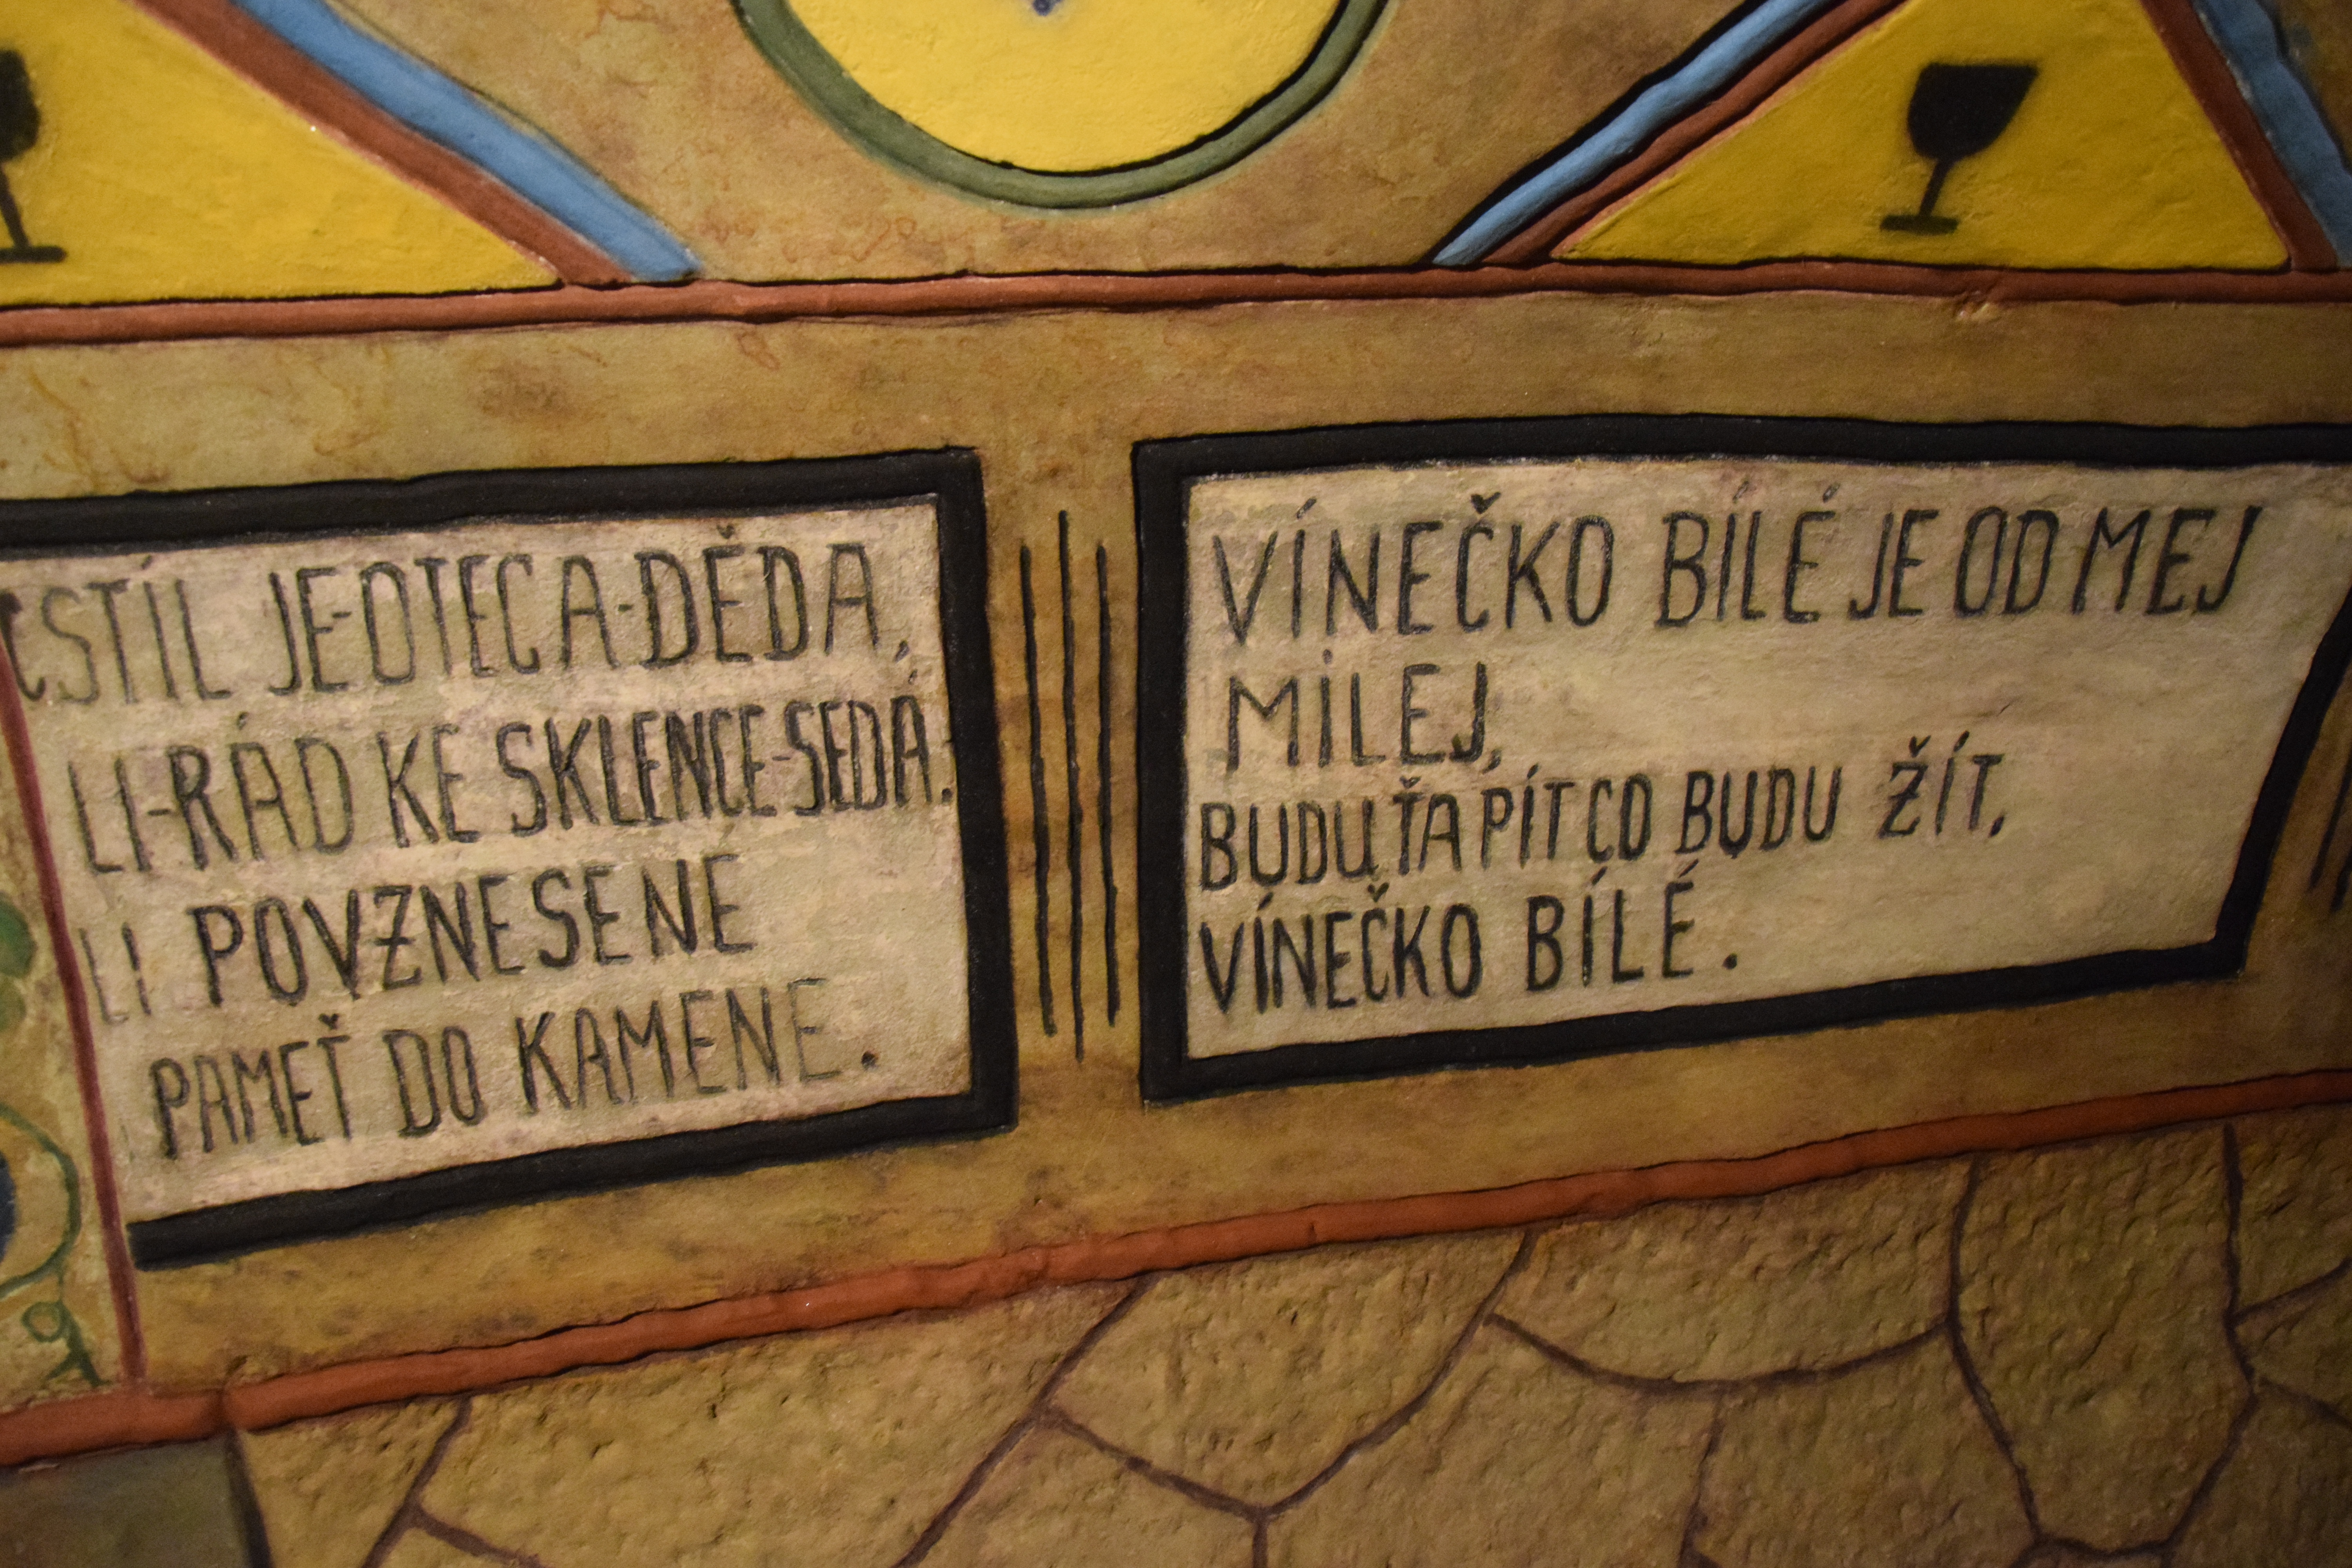 CSTÍL JE-OTECA-DĚDA,
LI-RÁD KE SKLENCE-SEDÁ.
LI POVZNESENE
PAMEŤ DO KAMENE.
VÍNEČKO BÍLÉ JE OD MEJ
MILEJ,
BUDU ŤA PÍT CO BUDU ŽÍT,
VÍNEČKO BÍLÉ.